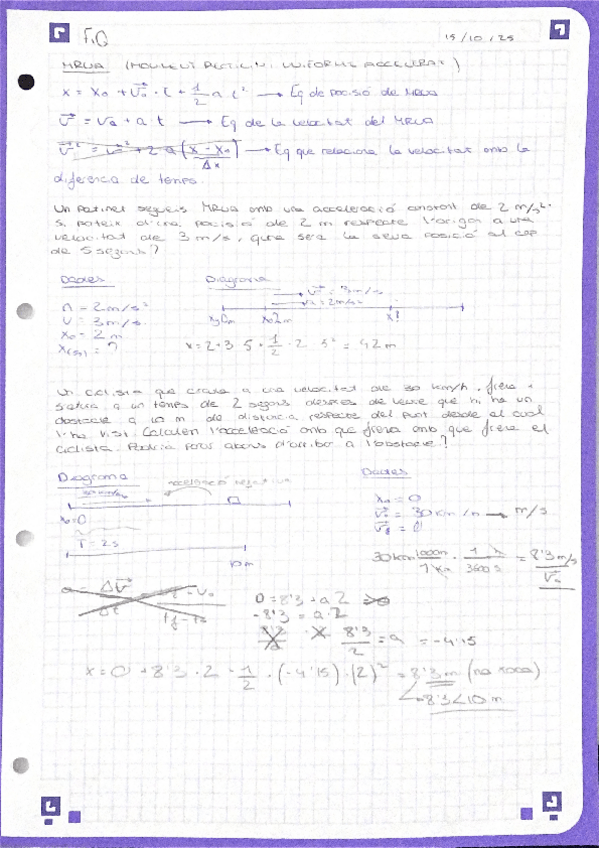 FiQ 15/10/25
MRUA (MOVIMENT RECTILINI UNIFORME ACCELERAT)
x = x₀ + v₀ · t + 1/2 a t² → Eq de posició de MRUA
v = v₀ + a · t → Eq de la velocitat del MRUA
v² = v₀² + 2 a (x - x₀) → Eq que relaciona la velocitat amb la
Δx
diferencia de temps.
Un patinet segueix MRUA amb una acceleració constant de 2 m/s².
Si parteix d'una posició de 2 m respecte l'origen a una
velocitat de 3 m/s, quina serà la seva posició al cap
de 5 segons?
Dades Diagrama
a = 2 m/s² v = 3 m/s
v = 3 m/s a = 2 m/s²
x₀ = 2 m x₀ 2m x?
x(5) = ? x = 2 + 3 · 5 + 1/2 · 2 · 5² = 42 m
Un ciclista que circula a una velocitat de 30 km/h, frena i
s'atura a un temps de 2 segons després de veure que hi ha un
obstacle a 10 m de distància respecte del punt desde el qual
l'ha vist. Calculeu l'acceleració amb que frena amb que frena el
ciclista. Podrià parar abans d'arribar a l'obstacle?
Diagrama Dades
acceleració negativa
x₀ = 0
x₀ = 0 v₀ = 30 km/h → m/s
T = 2s v_f = 0
10 m 30 km/h · 1000m/1 km · 1 h/3600 s = 8'3 m/s
v₀
a = Δv/Δt
t_f - t₀
0 = 8'3 + a · 2
-8'3 = a · 2
8'3/2 = a = -4'15
x = 0 + 8'3 · 2 - 1/2 · (-4'15) · (2)² = 8'3 m (no xoca)
8'3 < 10 m